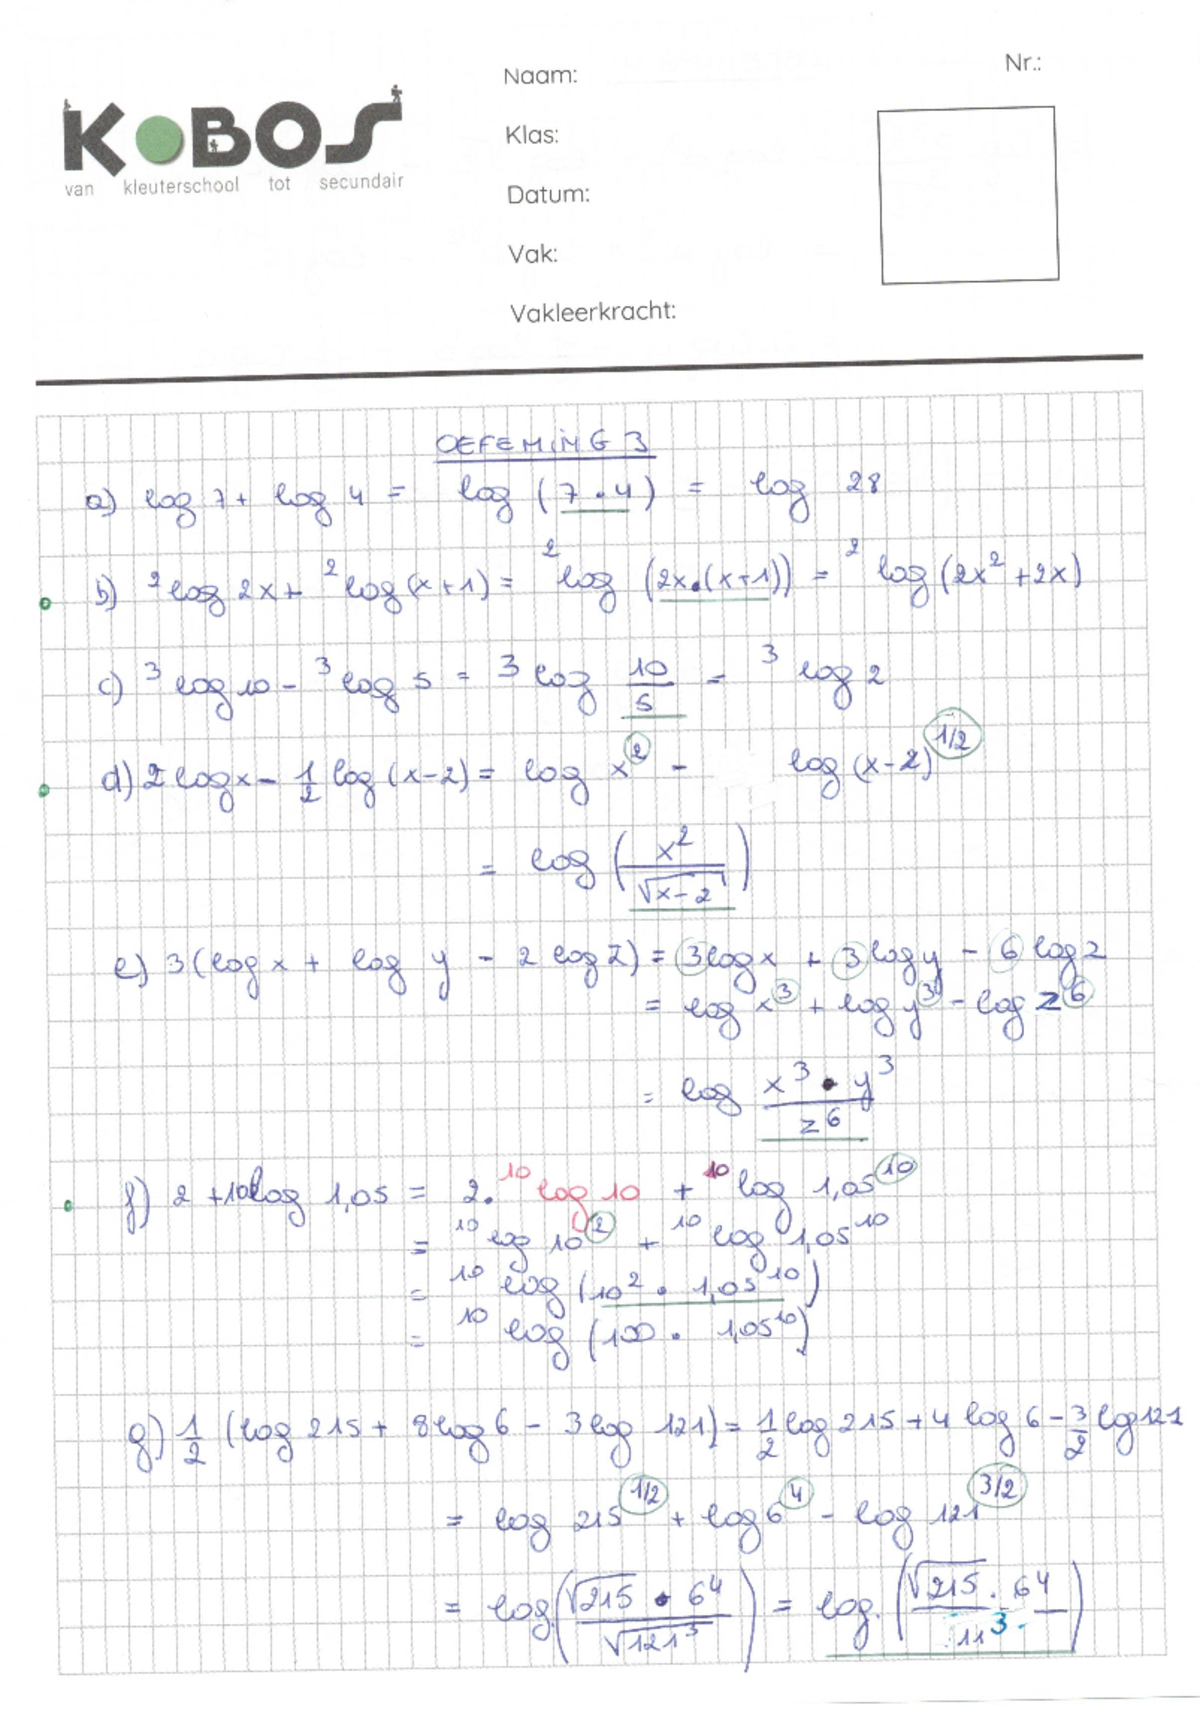 Naam:
Nr.:
KOBOS
van kleuterschool tot secundair
Klas:
Datum:
Vak:
Vakleerkracht:
OEFENING 3
a) log 7 + log 4 = log (7 · 4) = log 28
b) ²log 2x + ²log (x+1) = ²log (2x·(x+1)) = ²log (2x² + 2x)
c) ³log 10 - ³log 5 = ³log 10/5 = ³log 2
d) 2 log x - 1/2 log (x-2) = log x² - log (x-2)^1/2
= log (x²/√(x-2))
e) 3 (log x + log y - 2 log z) = 3 log x + 3 log y - 6 log z
= log x³ + log y³ - log z⁶
= log x³ · y³/z⁶
f) 2 + 10 log 1,05 = 2 · ¹⁰log 10 + ¹⁰log 1,05¹⁰
= ¹⁰log 10² + ¹⁰log 1,05¹⁰
= ¹⁰log (10² · 1,05¹⁰)
= ¹⁰log (100 · 1,05¹⁰)
g) 1/2 (log 215 + 8 log 6 - 3 log 121) = 1/2 log 215 + 4 log 6 - 3/2 log 121
= log 215^1/2 + log 6⁴ - log 121^3/2
= log (√215 · 6⁴/√121³) = log (√215 · 6⁴/11³)